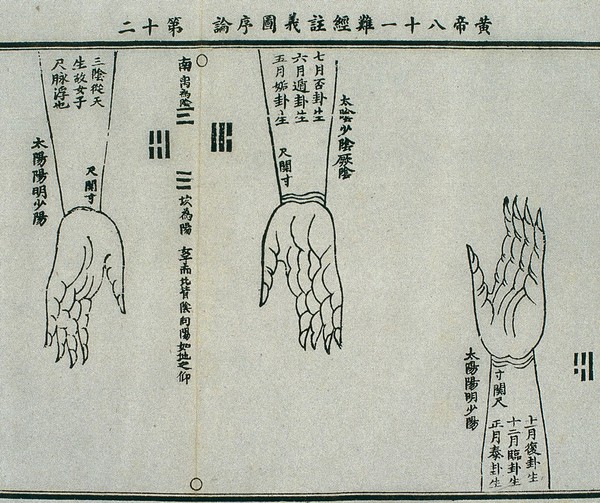 黃帝八十一難經註義圖序論 第十二
太陽陽明少陽
寸關尺
十一月復卦生
十二月臨卦生
正月泰卦生
太陰少陰厥陰
七月否卦生
六月遁卦生
五月姤卦生
尺關寸
南
為陰
坎為陽
而北背陰向陽如地之仰
三陰從天
生故女子
尺脉浮也
尺關寸
太陽陽明少陽